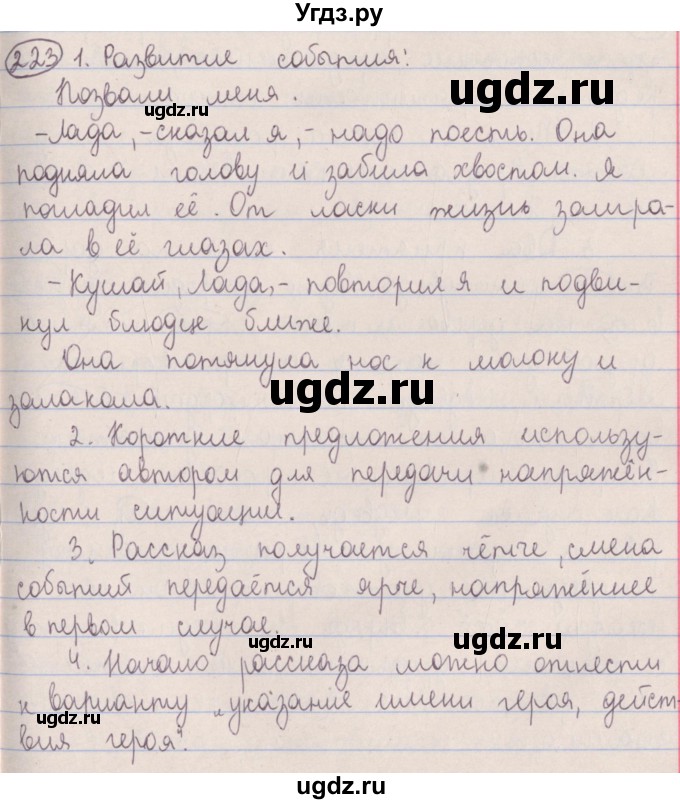 Угдз.ру
223 1. Развитие события:
Позвали меня.
ugdz.ru
- Лада, - сказал я, - надо поесть. Она
подняла голову и забила хвостом. Я
погладил её. От ласки жизнь заигра-
ла в её глазах.
- Кушай, Лада, - повторил я и подви-
нул блюдце ближе.
Она потянула нос к молоку и
залакала.
ugdz.ru
2. Короткие предложения использу-
ются автором для передачи напряжён-
ности ситуации.
3. Рассказ получается чётче, смена
событий передаётся ярче, напряжённее
в первом случае.
ugdz.ru ugdz.ru
4. Начало рассказа можно отнести
к варианту „указание имени героя, дейст-
ugdz.ru
вия героя".
ugdz.ru